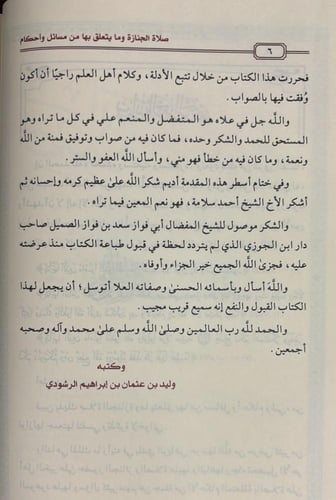 صلاة الجنازة وما يتعلق بها من مسائل وأحكام
٦
فحررت هذا الكتاب من خلال تتبع الأدلة، وكلام أهل العلم راجيًا أن أكون
وُفقت فيها بالصواب.
واللَّه جل في علاه هو المتفضل والمنعم علي في كل ما تراه وهو
المستحق للحمد والشكر وحده، فما كان فيه من صواب وتوفيق فمنة من اللَّه
ونعمة، وما كان فيه من خطأ فهو مني، وأسأل اللَّه العفو والستر.
وفي ختام أسطر هذه المقدمة أديم شكر اللَّه على عظيم كرمه وإحسانه ثم
أشكر الأخ الشيخ أحمد سلامة، فهو نعم المعين فيما تراه.
والشكر موصول للشيخ المفضال أبي فواز سعد بن فواز الصميل صاحب
دار ابن الجوزي الذي لم يتردد لحظة في قبول طباعة الكتاب منذ عرضته
عليه، فجزىٰ اللَّه الجميع خير الجزاء وأوفاه.
واللَّهَ أسأل وبأسمائه الحسنىٰ وصفاته العلا أتوسل؛ أن يجعل لهذا
الكتاب القبول والنفع إنه سميع قريب مجيب.
والحمد للَّه رب العالمين وصلىٰ اللَّه وسلم علىٰ محمد وآله وصحبه
أجمعين.
وكتبه
وليد بن عثمان بن إبراهيم الرشودي